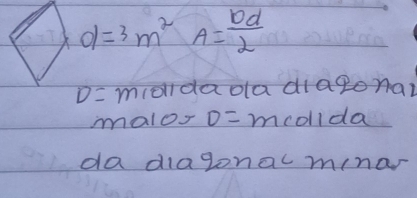 d=3m² A=Dd/2
D=medida da diagonal
maior D=medida
da diagonal menor